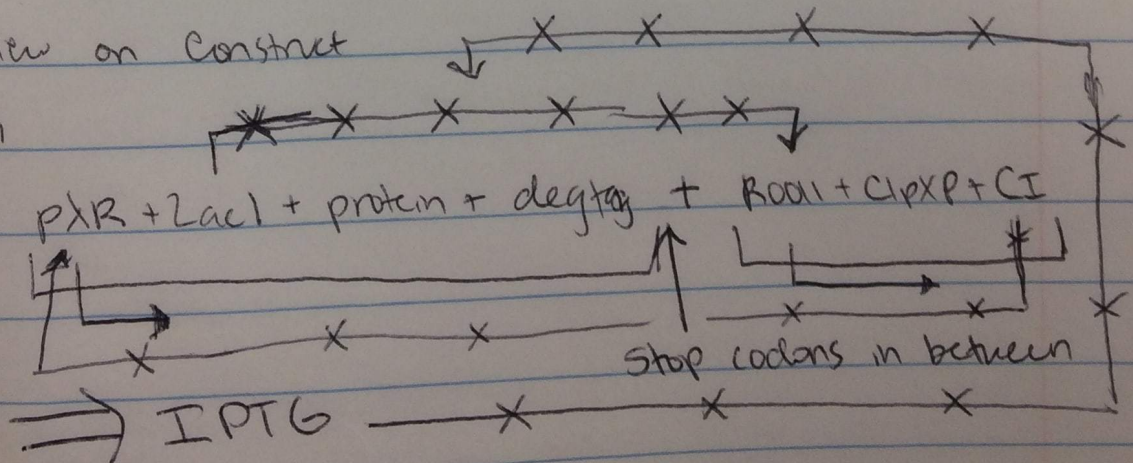 on Construct
pλR + Lacl + protein + degtag + R0011 + ClpXP + CI
Stop codons in between
IPTG